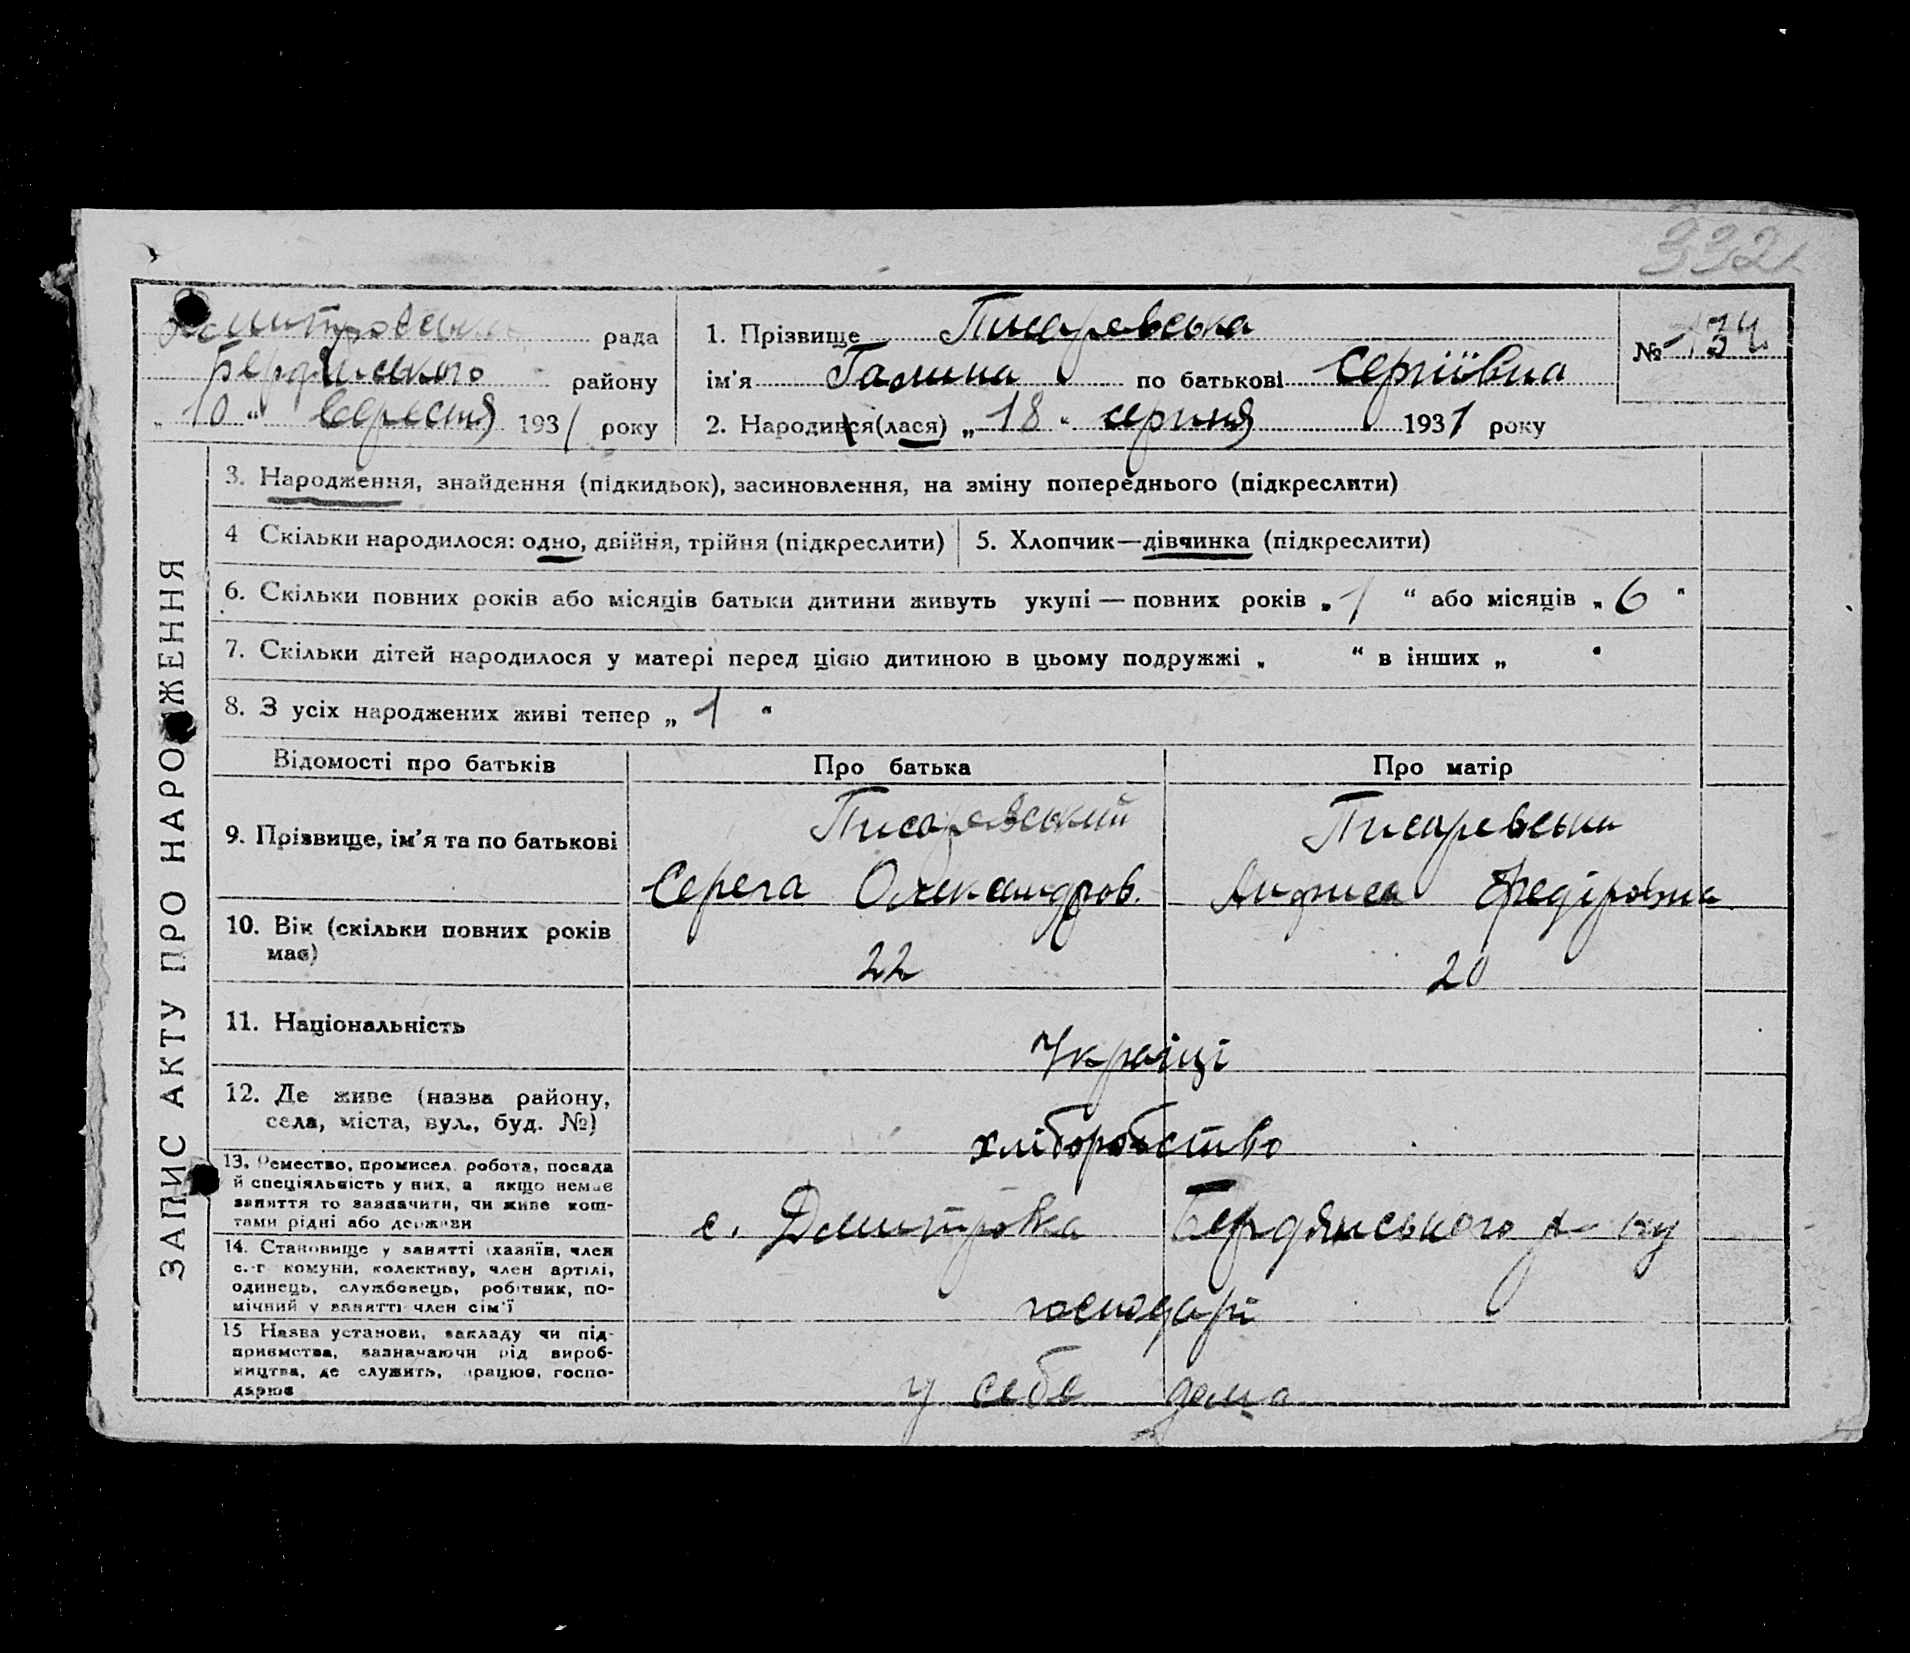 332
Дмитровська рада
Бердянського району
„10“ вересня 1931 року
1. Прізвище Писаревська
ім'я Галина по батькові Сергіївна
№ 134
2. Народився(лася) „18“ серпня 1931 року
ЗАПИС АКТУ ПРО НАРОДЖЕННЯ
3. Народження, знайдення (підкидьок), засиновлення, на зміну попереднього (підкреслити)
4 Скільки народилося: одно, двійня, трійня (підкреслити)
5. Хлопчик—дівчинка (підкреслити)
6. Скільки повних років або місяців батьки дитини живуть укупі — повних років „1“ або місяців „6“
7. Скільки дітей народилося у матері перед цією дитиною в цьому подружжі „ “ в інших „ “
8. З усіх народжених живі тепер „1“
Відомості про батьків
Про батька
Про матір
9. Прізвище, ім'я та по батькові
Писаревський
Серега Олександров.
Писаревська
Федіровна
10. Вік (скільки повних років
має)
22
20
11. Національність
Украінці
12. Де живе (назва району,
села, міста, вул., буд. №)
хліборобство
13. Ремество, промисел, робота, посада
й спеціяльність у них, а якщо немає
заняття то зазначити, чи живе кош-
тами рідні або держави
с. Дмитровка Бердянського р-ну
14. Становище у занятті (хазяїн, член
с.-г. комуни, колективу, член артілі,
одинець, службовець, робітник, по-
мічний у занятті член сім'ї
господарі
15 Назва установи, закладу чи під-
приємства, зазначаючи рід вироб-
ництва, де служить, працює, госпо-
дарює
у себе дома